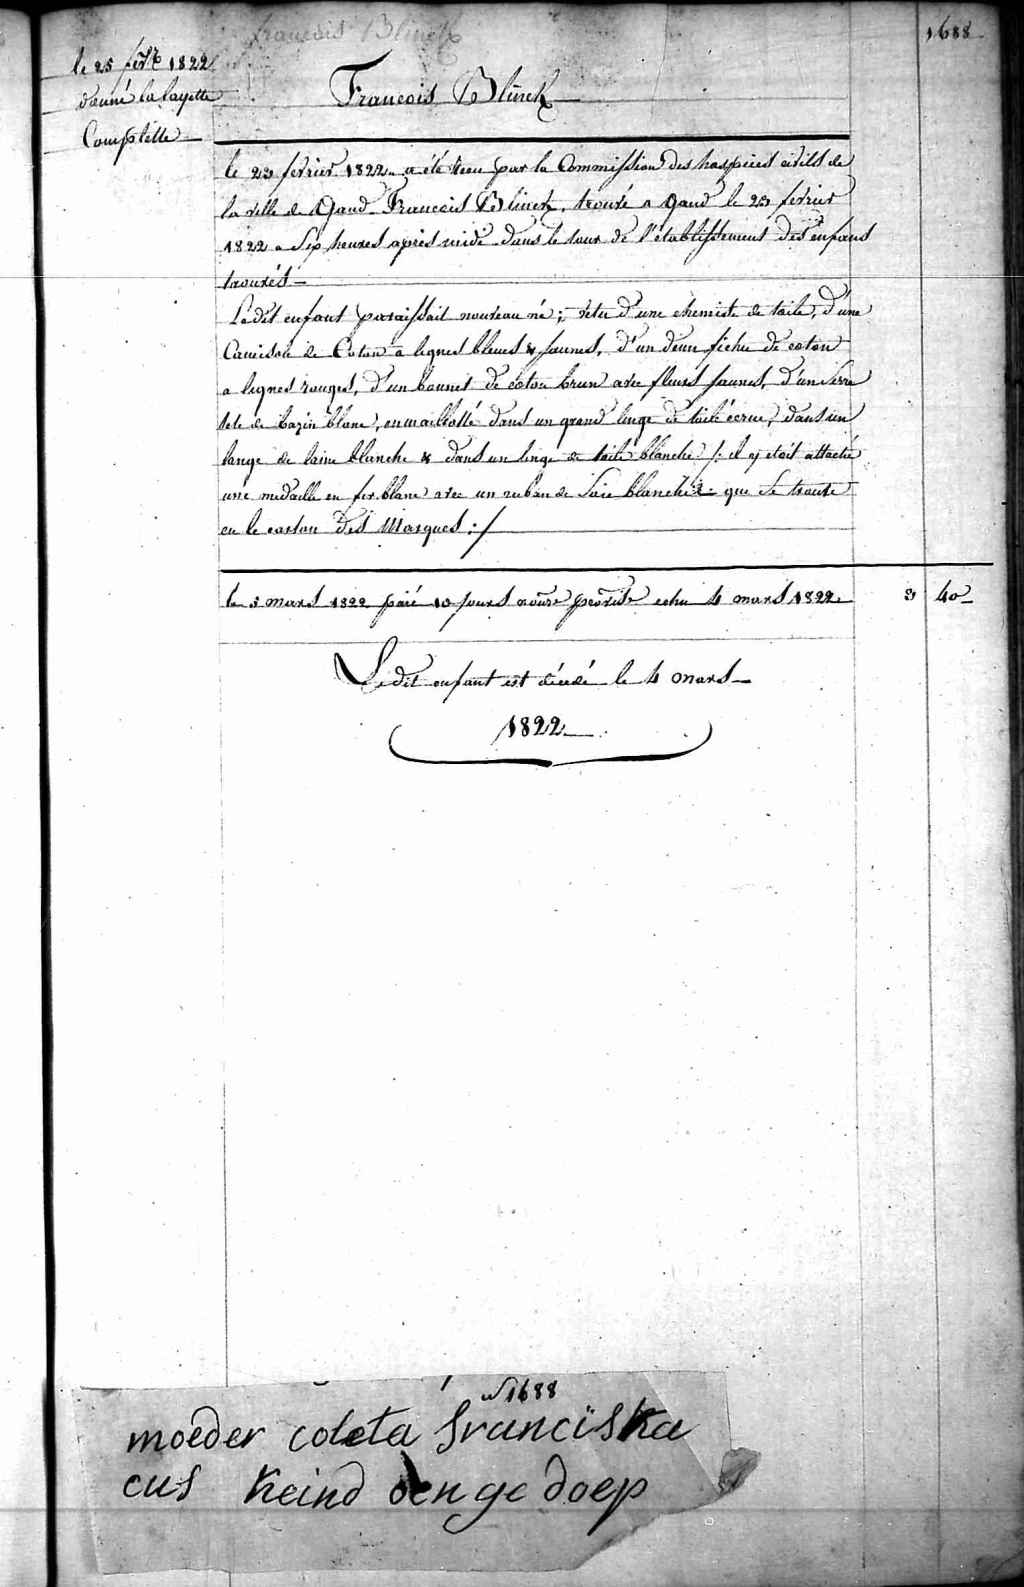 1688
Francois Blinck
le 25 fevr 1822
donné la layette
Complette
Francois Blinck
le 23 fevrier 1822 a été recu par la Commission des hospices civils de
la ville de Gand Francois Blinck, trouvé a Gand le 23 fevrier
1822 a six heures après midi dans le tour de l'établissement des enfans
trouvés
Ledit enfant paraissait nouveau né; vetu d'une chemise de toile, d'une
Camisole de Coton a lignes bleues & jaunes, d'un demi fichu de coton
a lignes rouges, d'un bonnet de coton brun avec fleurs jaunes, d'un serre
tete de bazin blanc, enmaillotté dans un grand linge de toile écrue, dans un
lange de laine blanche & dans un linge de toile blanche /: il y etoit attaché
une medaille en fer blanc avec un ruban de soie blanche que se trouve
en le carton des Marques :/
le 5 mars 1822 paié 10 jours echu 4 mars 1822 3 40
Ledit enfant est décédé le 4 mars
1822
No 1688
moeder coleta franciska
cus keind den ge doep